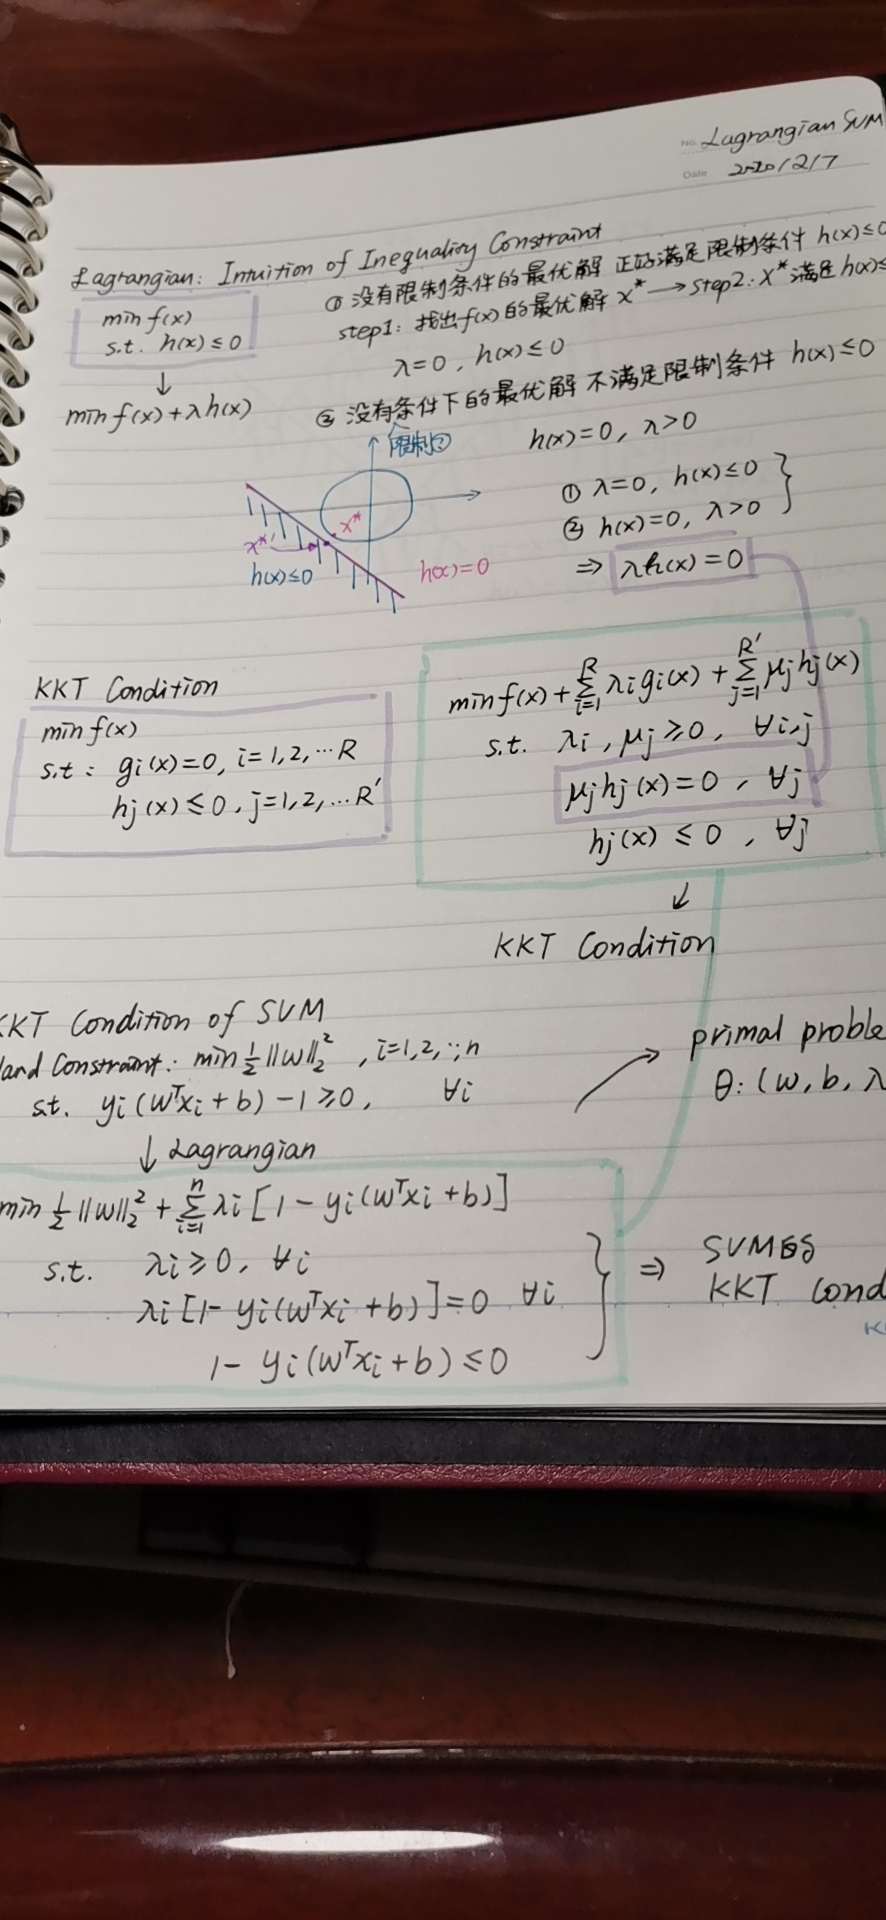 No. Lagrangian SVM
Date 2020/2/7
Lagrangian: Intuition of Inequality Constraint
min f(x)
s.t. h(x) ≤ 0
↓
min f(x) + λ h(x)
① 没有限制条件的最优解 正好满足限制条件 h(x) ≤ 0
step1: 找出f(x)的最优解 x* → step2: x* 满足 h(x) ≤
λ=0, h(x) ≤ 0
② 没有条件下的最优解 不满足限制条件 h(x) ≤ 0
限制
h(x)=0, λ>0
① λ=0, h(x) ≤ 0
② h(x)=0, λ>0
⇒ λh(x)=0
x*
x*'
h(x)≤0
h(x)=0
KKT Condition
min f(x)
s.t: gi(x)=0, i=1,2,…R
hj(x) ≤ 0, j=1,2,…R'
min f(x) + Σ_{i=1}^{R} λi gi(x) + Σ_{j=1}^{R'} μj hj(x)
s.t. λi, μj ≥ 0, ∀i,j
μj hj(x) = 0, ∀j
hj(x) ≤ 0, ∀j
↓
KKT Condition
KKT Condition of SVM
Hard Constraint: min ½||w||₂², i=1,2,..,n
s.t. yi(wᵀxi+b)-1 ≥ 0, ∀i
↓ Lagrangian
primal proble
θ: (w, b, λ
min ½||w||₂² + Σ_{i=1}^{n} λi [1 - yi(wᵀxi+b)]
s.t. λi ≥ 0, ∀i
λi[1- yi(wᵀxi+b)]=0 ∀i
1- yi(wᵀxi+b) ≤ 0
⇒ SVM的
KKT Cond